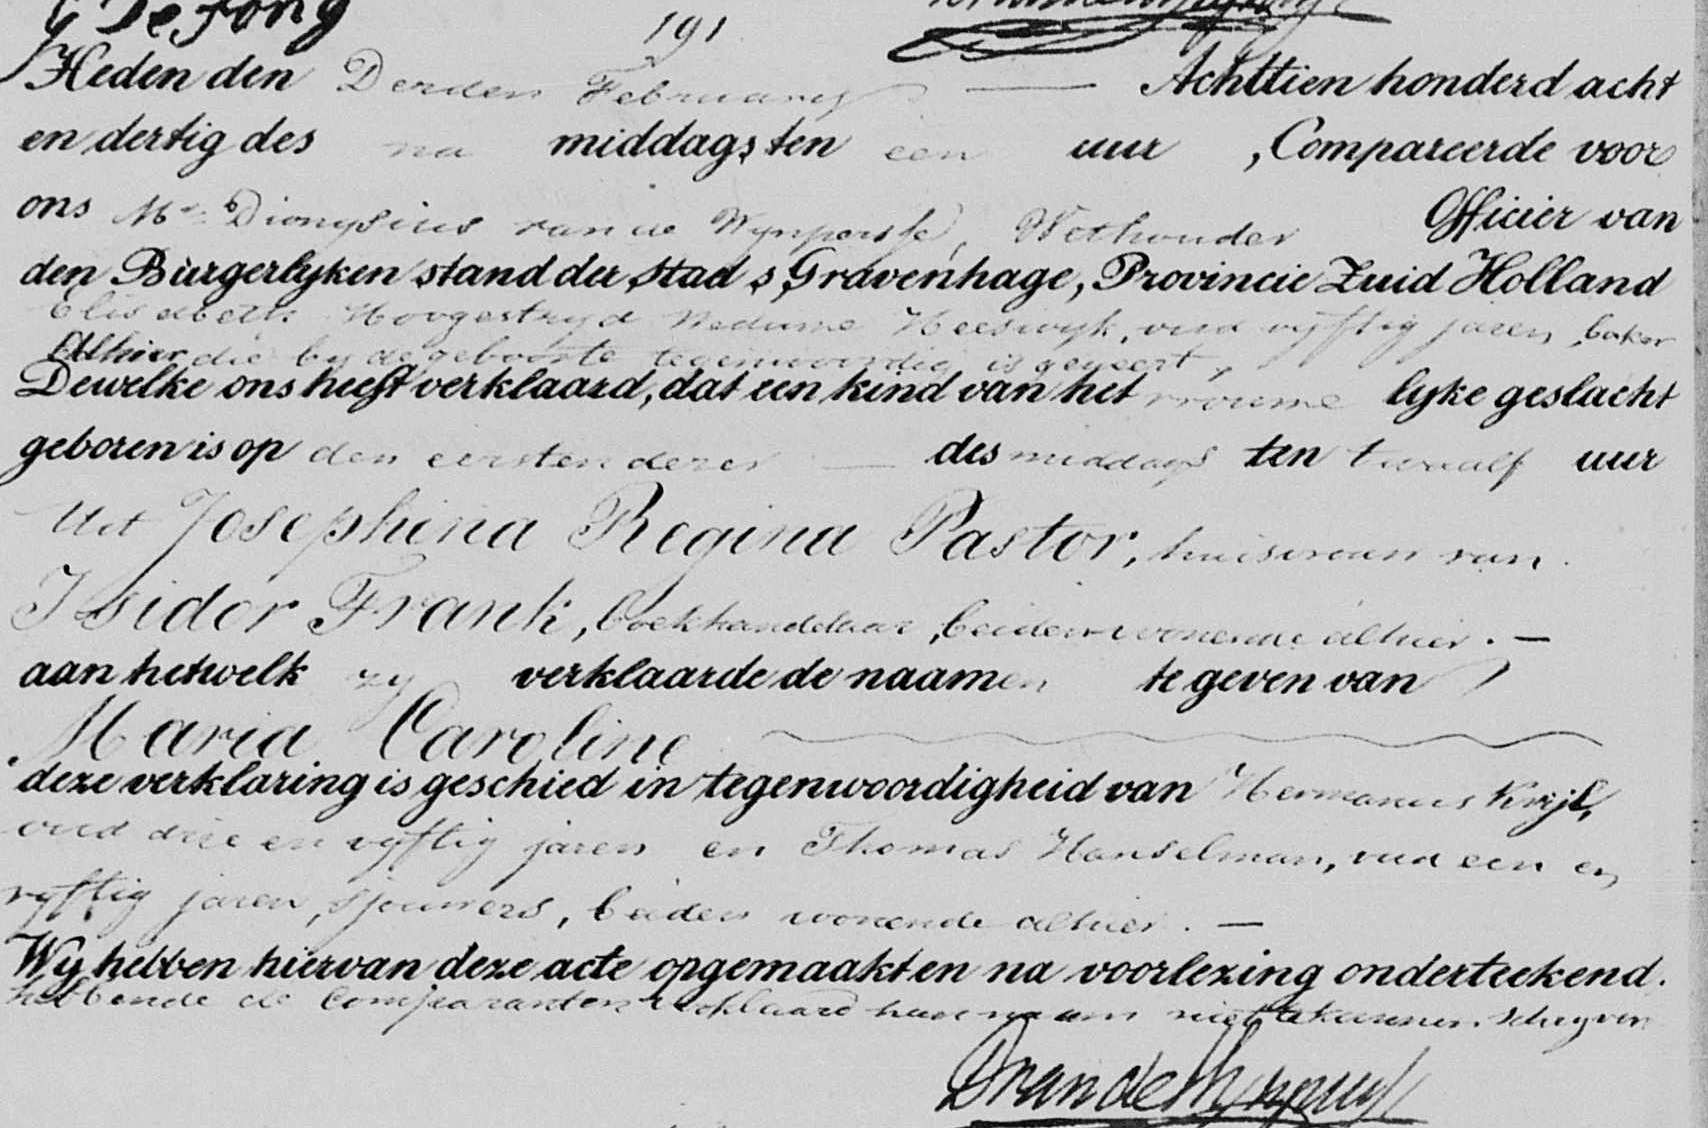 G De Jong
191
Heden den Derden February Achttien honderd acht
en dertig des na middags ten een uur , Compareerde voor
ons Mr. Dionysius van de Wynpersse, Wethouder Officier van
den Burgerlyken stand der Stad s Gravenhage, Provincie Zuid Holland
Elisabeth Hoogestryd Weduwe Heeswyk, oud vyftig jaren, baker
Alhier die by de geboorte tegenwoordig is geweest,
Dewelke ons heeft verklaard, dat een kind van het vrouwe lyke geslacht
geboren is op den eersten dezer des middags ten twaalf uur
Uit Josephina Regina Pastor, huisvrouw van
Isidor Frank, boekhandelaar, beiden wonende alhier. —
aan hetwelk zy verklaarde de naamen te geven van
Maria Caroline
deze verklaring is geschied in tegenwoordigheid van Hermanus Kryl,
oud drie en vyftig jaren en Thomas Hanselman, oud een en
vyftig jaren, sjouwers, beiden wonende alhier. —
Wy hebben hiervan deze acte opgemaakt en na voorlezing onderteekend.
hebbende de Comparanten verklaard hunnen naam niet te kunnen schryven
D van de Wynpersse